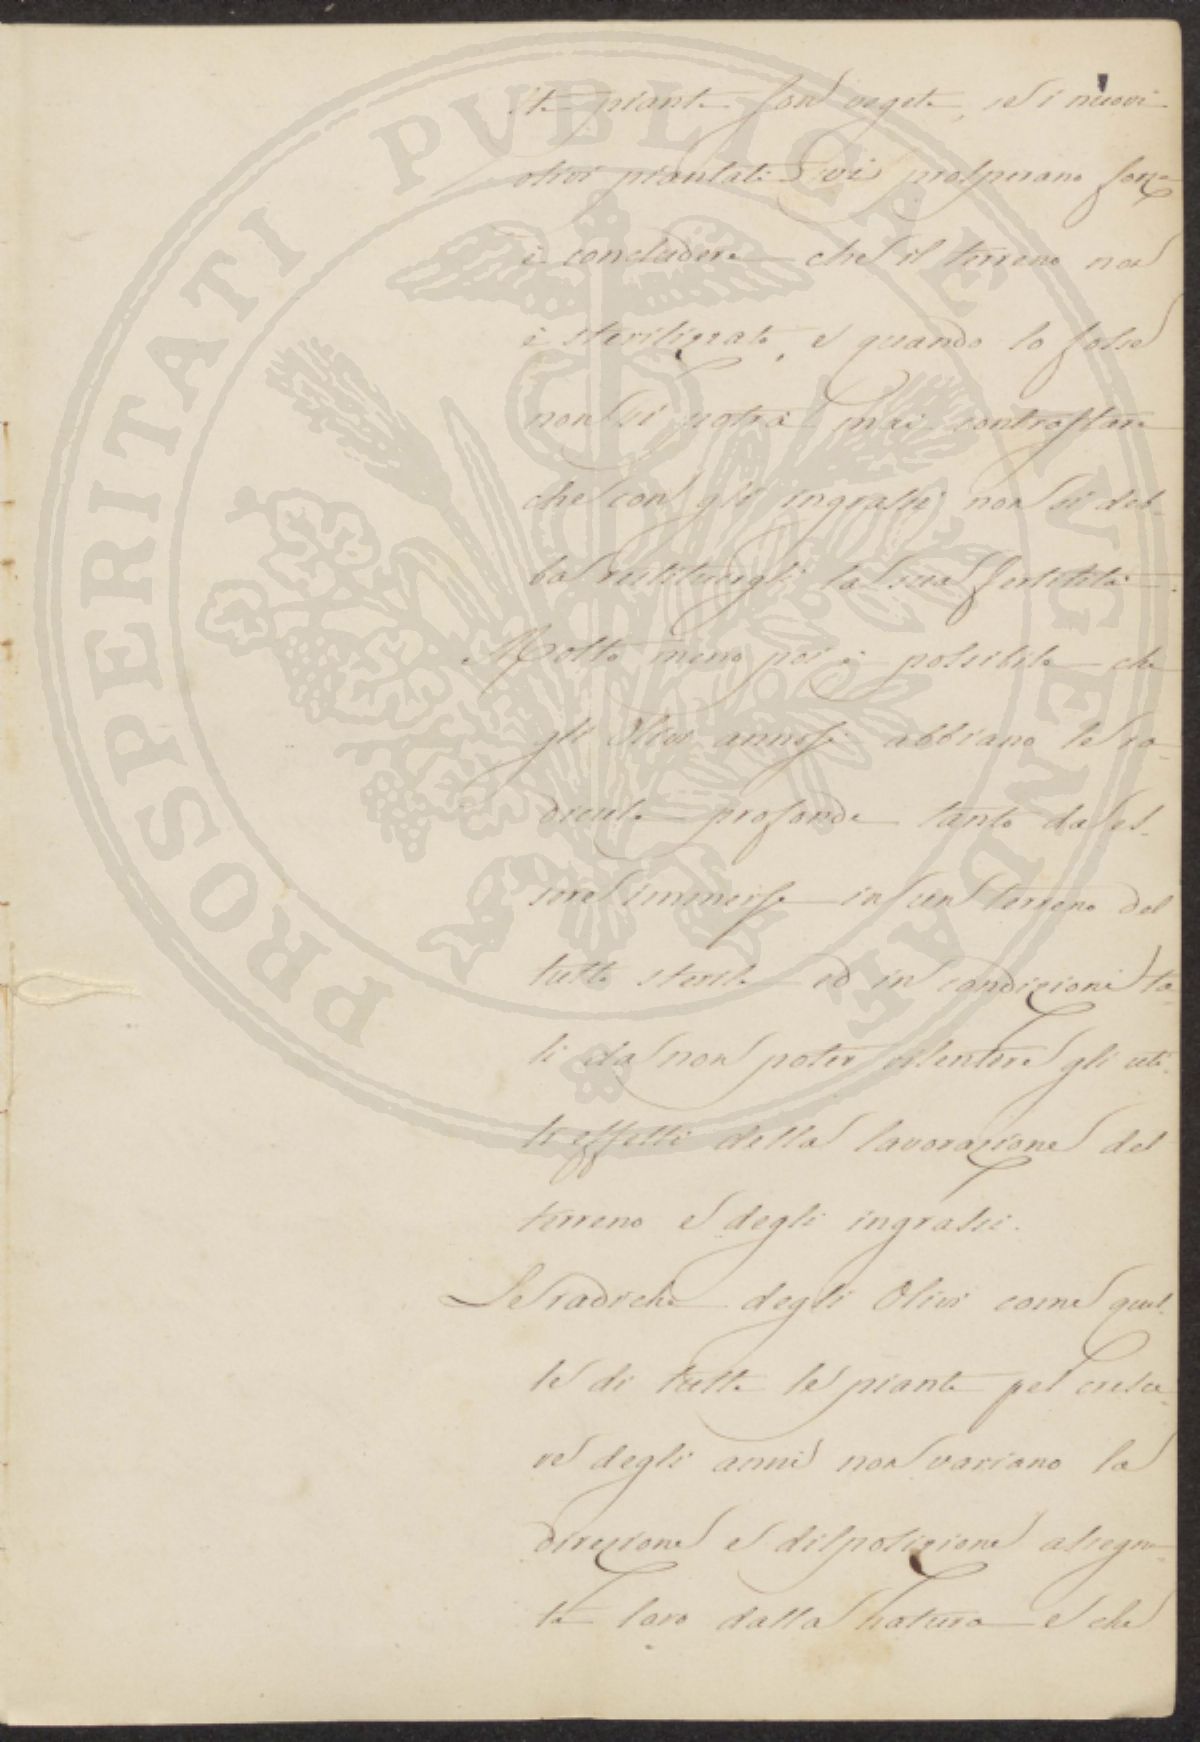 ste piante son vegete, se i nuovi
olivi piantati vi prosperano forza
è concludere che il terreno non
è sterilizzato, e quando lo fosse
non si potrà mai contrastare
che con gli ingrassi non si deb-
ba restituirgli la sua fertilità.
Molto meno poi è possibile che
gli Olivi annosi abbiano le ra-
dicule profonde tanto da es-
sere immerse in un terreno del
tutto sterile ed in condizioni ta-
li da non poter risentire gli uti-
li effetti della lavorazione del
terreno e degli ingrassi.
Le radiche degli Olivi come quel-
le di tutte le piante pel cresce-
re degli anni non variano la
direzione e disposizione assegna-
ta loro dalla natura e che
PROSPERITATI PVBLICAE AVGENDAE